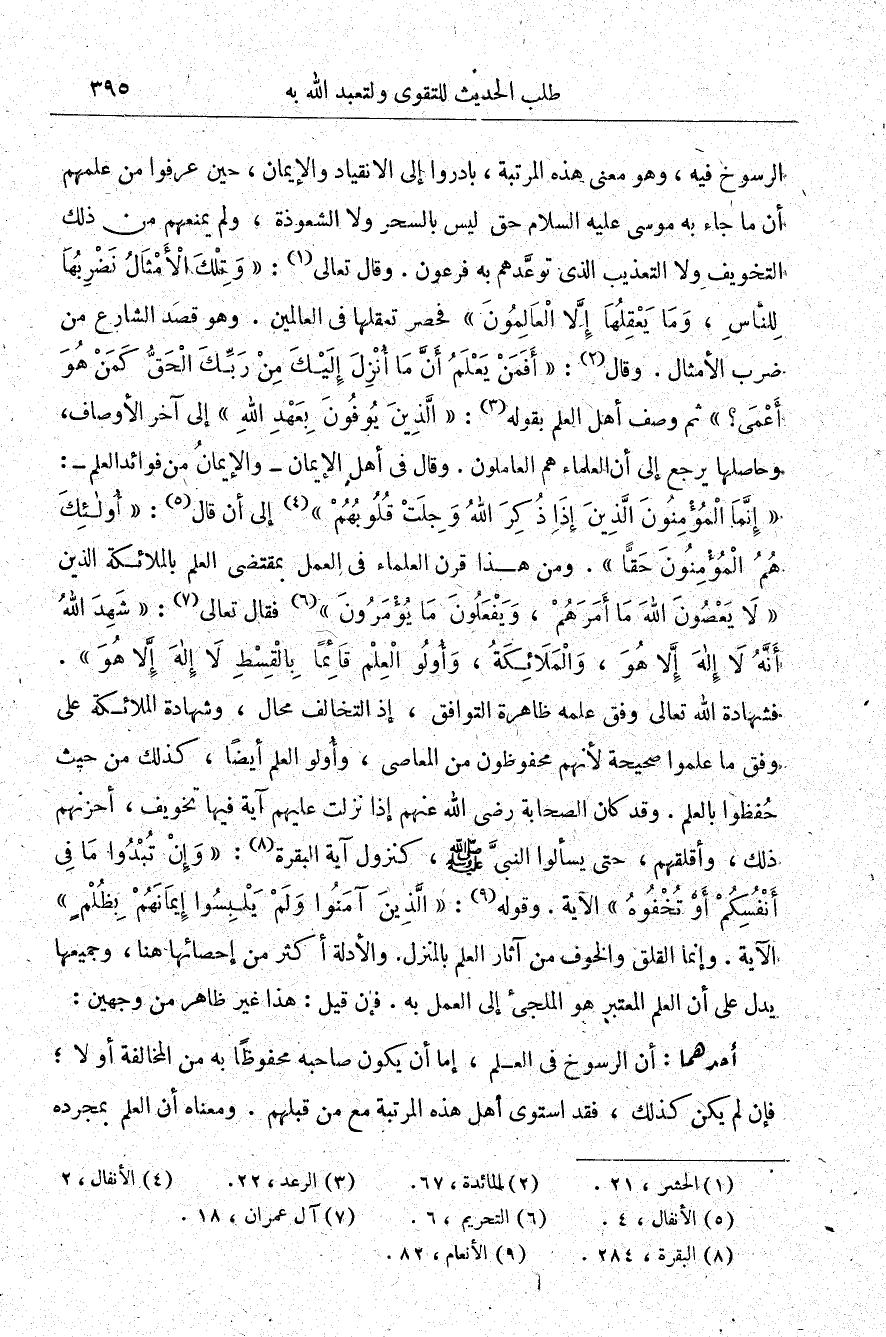 طلب الحديث للتقوى ولتعبد الله به ٣٩٥
الرسوخ فيه ، وهو معنى هذه المرتبة ، بادروا إلى الانقياد والإيمان ، حين عرفوا من علمهم
أن ما جاء به موسى عليه السلام حق ليس بالسحر ولا الشعوذة ، ولم يمنعهم من ذلك
التخويف ولا التعذيب الذى توعَّدهم به فرعون . وقال تعالى(١) : « وَتِلْكَ الْأَمْثَالُ نَضْرِبُهَا
لِلنَّاسِ ، وَمَا يَعْقِلُهَا إِلَّا الْعَالِمُونَ » فحصر تعقلها فى العالمين . وهو قصَد الشارع من
ضرب الأمثال . وقال(٢) : « أَفَمَنْ يَعْلَمُ أَنَّ مَا أُنْزِلَ إِلَيْكَ مِنْ رَبِّكَ الْحَقُّ كَمَنْ هُوَ
أَعْمَى؟ » ثم وصف أهل العلم بقوله(٣) : « الَّذِينَ يُوفُونَ بِعَهْدِ اللهِ » إلى آخر الأوصاف،
وحاصلها يرجع إلى أن العلماء هم العاملون . وقال فى أهل الإيمان ــ والإيمانُ من فوائد العلم ــ :
« إِنَّمَا الْمُؤْمِنُونَ الَّذِينَ إِذَا ذُكِرَ اللهُ وَجِلَتْ قُلُوبُهُمْ »(٤) إلى أن قال(٥) : « أُولٰئِكَ
هُمُ الْمُؤْمِنُونَ حَقًّا » . ومن هــذا قرن العلماء فى العمل بمقتضى العلم بالملائكة الذين
« لَا يَعْصُونَ اللهَ مَا أَمَرَهُمْ ، وَيَفْعَلُونَ مَا يُؤْمَرُونَ »(٦) فقال تعالى(٧) : « شَهِدَ اللهُ
أَنَّهُ لَا إِلٰهَ إِلَّا هُوَ ، وَالْمَلَائِكَةُ ، وَأُولُو الْعِلْمِ قَائِمًا بِالْقِسْطِ لَا إِلٰهَ إِلَّا هُوَ » .
فشهادة الله تعالى وفق علمه ظاهرة التوافق ، إذ التخالف محال ، وشهادة الملائكة على
وفق ما علموا صحيحة لأنهم محفوظون من المعاصى ، وأولو العلم أيضًا ، كذلك من حيث
حُفظوا بالعلم . وقد كان الصحابة رضى الله عنهم إذا نزلت عليهم آية فيها تخويف ، أحزنهم
ذلك ، وأقلقهم ، حتى يسألوا النبىَّ ﷺ ، كنزول آية البقرة(٨) : « وَإِنْ تُبْدُوا مَا فِى
أَنْفُسِكُمْ أَوْ تُخْفُوهُ » الآية . وقوله(٩) : « الَّذِينَ آمَنُوا وَلَمْ يَلْبِسُوا إِيمَانَهُمْ بِظُلْمٍ »
الآية . وإنما القلق والخوف من آثار العلم بالمنزل. والأدلة أكثر من إحصائها هنا ، وجميعها
يدل على أن العلم المعتبر هو الملجىٔ إلى العمل به . فإن قيل : هذا غير ظاهر من وجهين :
أحدهما : أن الرسوخ فى العـلم ، إما أن يكون صاحبه محفوظًا به من المخالفة أو لا ؛
فإن لم يكن كذلك ، فقد استوى أهل هذه المرتبة مع من قبلهم . ومعناه أن العلم بمجرده
(١) الحشر ، ٢١ . (٢) المائدة ، ٦٧. (٣) الرعد ، ٢٢. (٤) الأنفال ، ٢
(٥) الأنفال ، ٤. (٦) التحريم ، ٦ . (٧) آل عمران ، ١٨ .
(٨) البقرة ، ٢٨٤ . (٩) الأنعام ، ٨٢ .